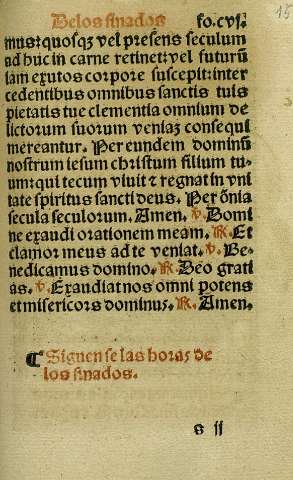 Delos finados fo.cvj. 15
mus: quosqʒ vel presens seculum
ad huc in carne retinet: vel futurũ
iam exutos corpore suscepit: inter
cedentibus omnibus sanctis tuis
pietatis tue clementia omnium de
lictorum suorum veniaʒ consequi
mereantur. Per eundem dominũ
nostrum iesum christum filium tu-
um: qui tecum viuit & regnat in vni
tate spiritus sancti deus. Per õnia
secula seculorum. Amen. v. Domi
ne exaudi orationem meam. R. Et
clamor meus ad te veniat. v. Be-
nedicamus domino. R. Deo grati
as. v. Exaudiat nos omni potens
et misericors dominus. R. Amen.
¶ Siguen se las horas de
los finados.
s ij